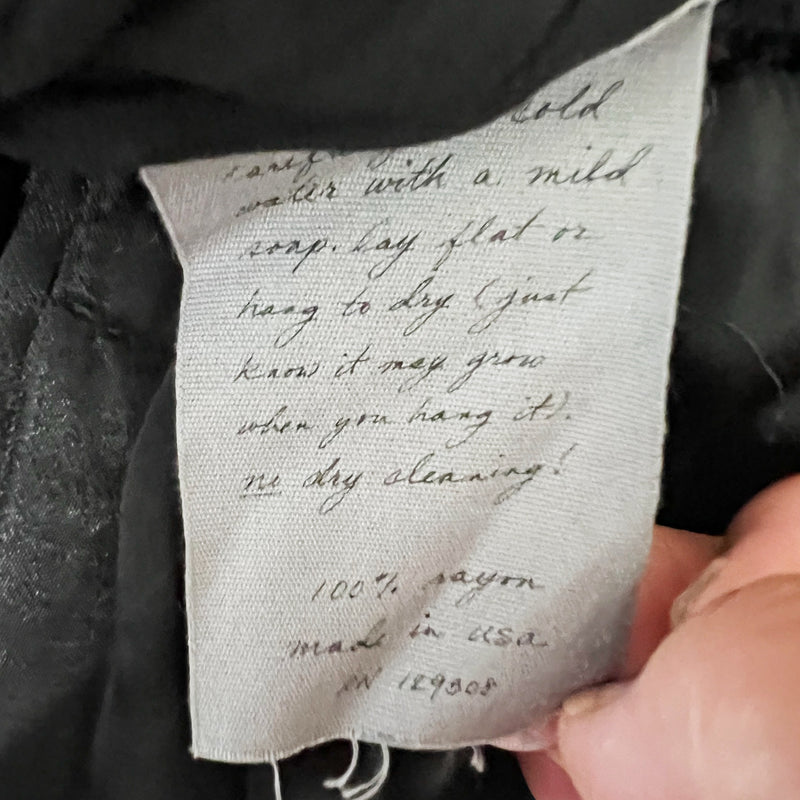 cold
water with a mild
soap. lay flat or
hang to dry (just
know it may grow
when you hang it).
no dry cleaning!
100% rayon
made in usa
RN 129308